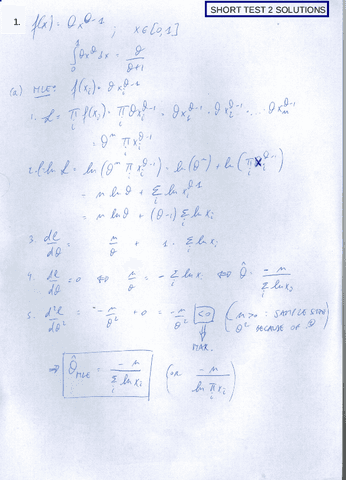 SHORT TEST 2 SOLUTIONS
1. f(x) = θx^(θ-1) ; x∈[0,1]
∫₀¹ θx^θ dx = θ/(θ+1)
(a) MLE: f(xᵢ) = θxᵢ^(θ-1)
1. L = πᵢ f(xᵢ) = πᵢ θxᵢ^(θ-1) = θx₁^(θ-1) · θx₂^(θ-1) · ... · θxₙ^(θ-1)
= θⁿ πᵢ xᵢ^(θ-1)
2. l = ln L = ln(θⁿ πᵢ xᵢ^(θ-1)) = ln(θⁿ) + ln(πᵢ xᵢ^(θ-1))
= n ln θ + Σᵢ ln xᵢ^(θ-1)
= n ln θ + (θ-1) Σᵢ ln xᵢ
3. dl/dθ = n/θ + 1 · Σᵢ ln xᵢ
4. dl/dθ = 0 ⇔ n/θ = - Σᵢ ln xᵢ ⇔ θ̂ = -n / Σᵢ ln xᵢ
5. d²l/dθ² = -n/θ² + 0 = -n/θ² < 0 (n>0 : SAMPLE SIZE
θ² BECAUSE OF ²)
MAX.
⇒ θ̂_MLE = -n / Σᵢ ln xᵢ (OR -n / ln πᵢ xᵢ)